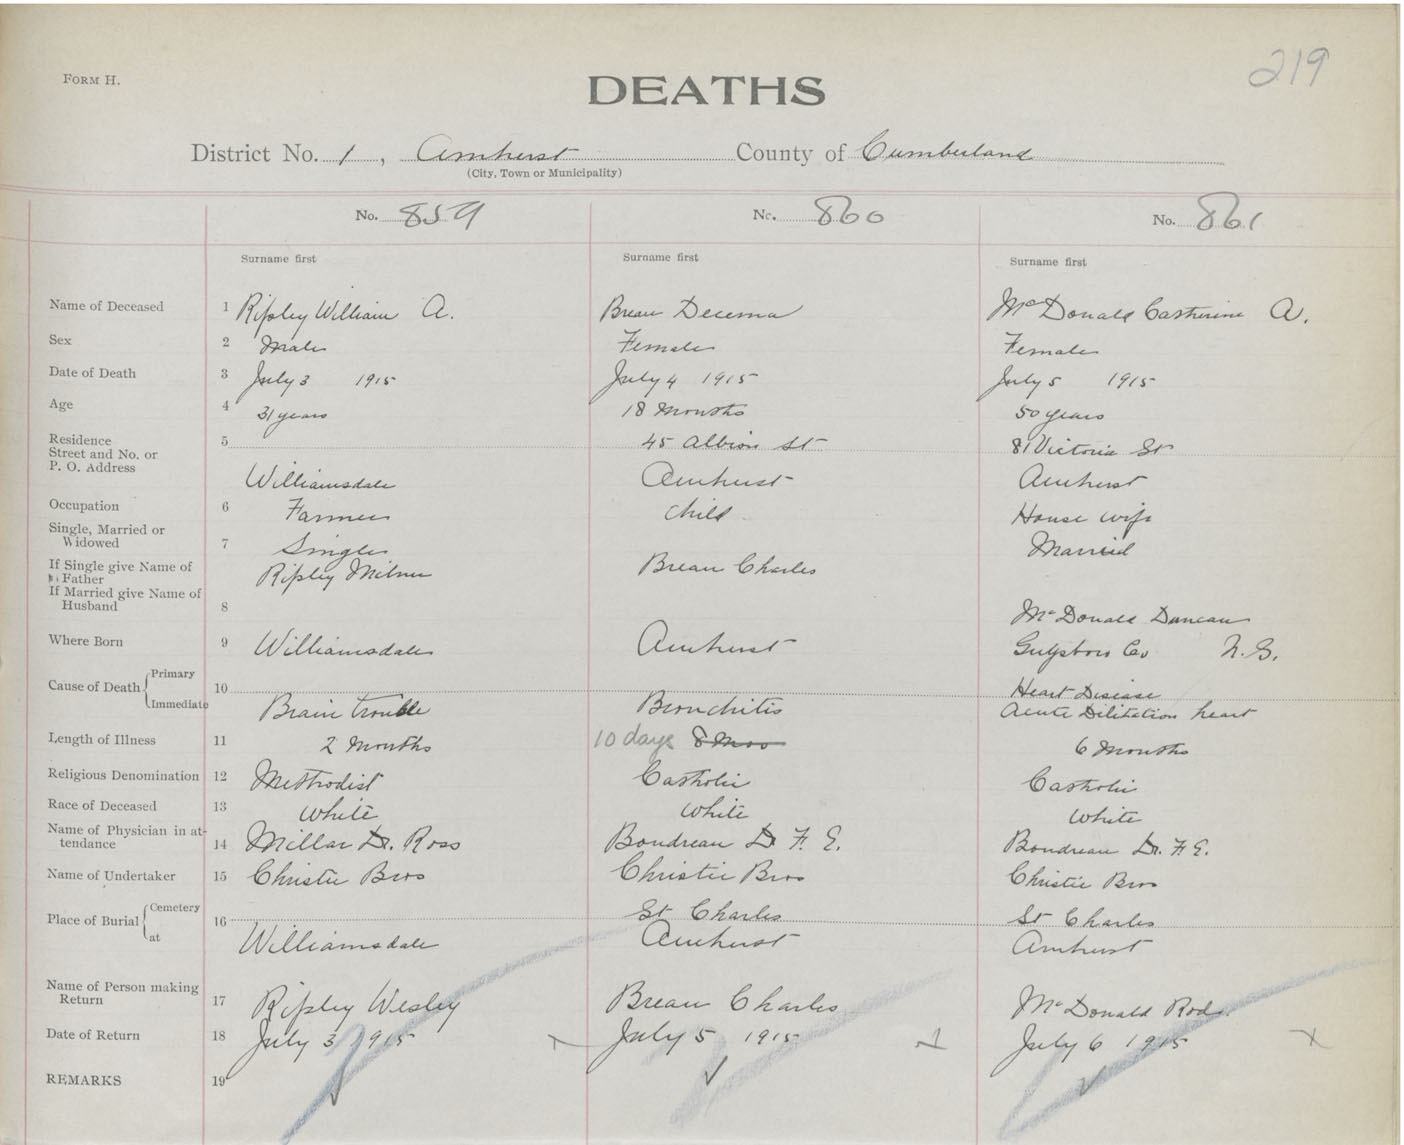 219
FORM H.
DEATHS
District No. 1, Amherst County of Cumberland
(City, Town or Municipality)
No. 859 No. 860 No. 861
Surname first Surname first Surname first
Name of Deceased 1 Ripley William A. Breau Decema McDonald Catherine A.
Sex 2 Male Female Female
Date of Death 3 July 3 1915 July 4 1915 July 5 1915
Age 4 31 years 18 Months 50 years
Residence 5 45 Albion St 81 Victoria St
Street and No. or
P. O. Address Williamsdale Amherst Amherst
Occupation 6 Farmer Child House wife
Single, Married or
Widowed 7 Single Married
If Single give Name of
Father Ripley Milner Breau Charles
If Married give Name of
Husband 8 McDonald Duncan
Where Born 9 Williamsdale Amherst Guysboro Co N.S.
Cause of Death Primary 10 Heart Disease
Immediate Brain trouble Bronchitis Acute Dilitation heart
Length of Illness 11 2 Months 10 days 8 Mos 6 Months
Religious Denomination 12 Methodist Catholic Catholic
Race of Deceased 13 White White White
Name of Physician in at-
tendance 14 Millar Dr. Ross Boudreau Dr F. E. Boudreau Dr. F. E.
Name of Undertaker 15 Christie Bros Christie Bros Christie Bros
Place of Burial Cemetery 16 St Charles St Charles
at Williamsdale Amherst Amherst
Name of Person making
Return 17 Ripley Wesley Breau Charles McDonald Rod.
Date of Return 18 July 3 1915 July 5 1915 July 6 1915
REMARKS 19